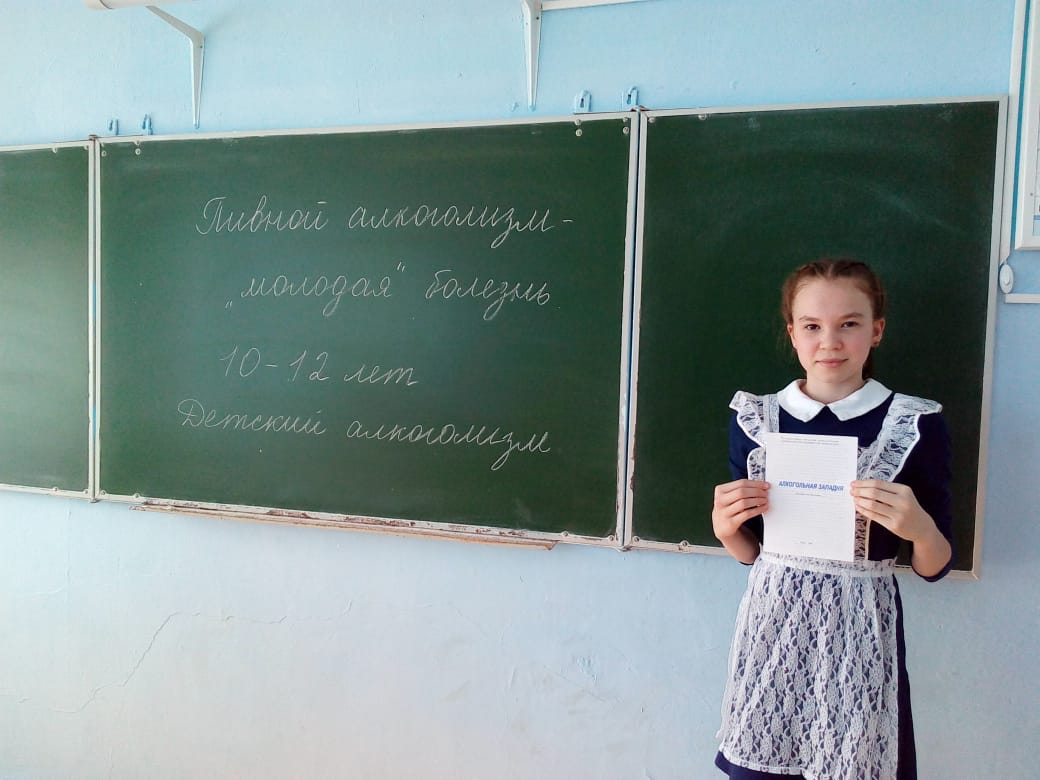 Пивной алкоголизм -
„молодая" болезнь
10-12 лет
Детский алкоголизм
АЛКОГОЛЬНАЯ ЗАПАДНЯ